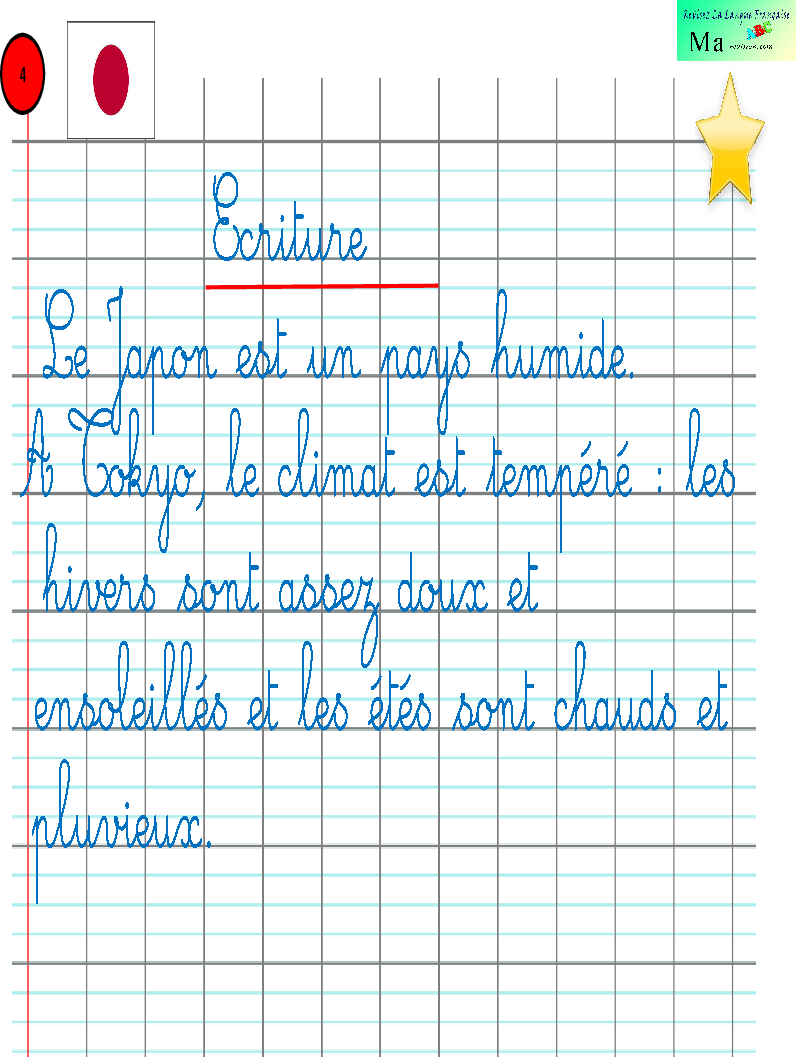 Revisez La Langue Française
Ma
revision.com
4
Ecriture
Le Japon est un pays humide.
A Tokyo, le climat est tempéré : les
hivers sont assez doux et
ensoleillés et les étés sont chauds et
pluvieux.